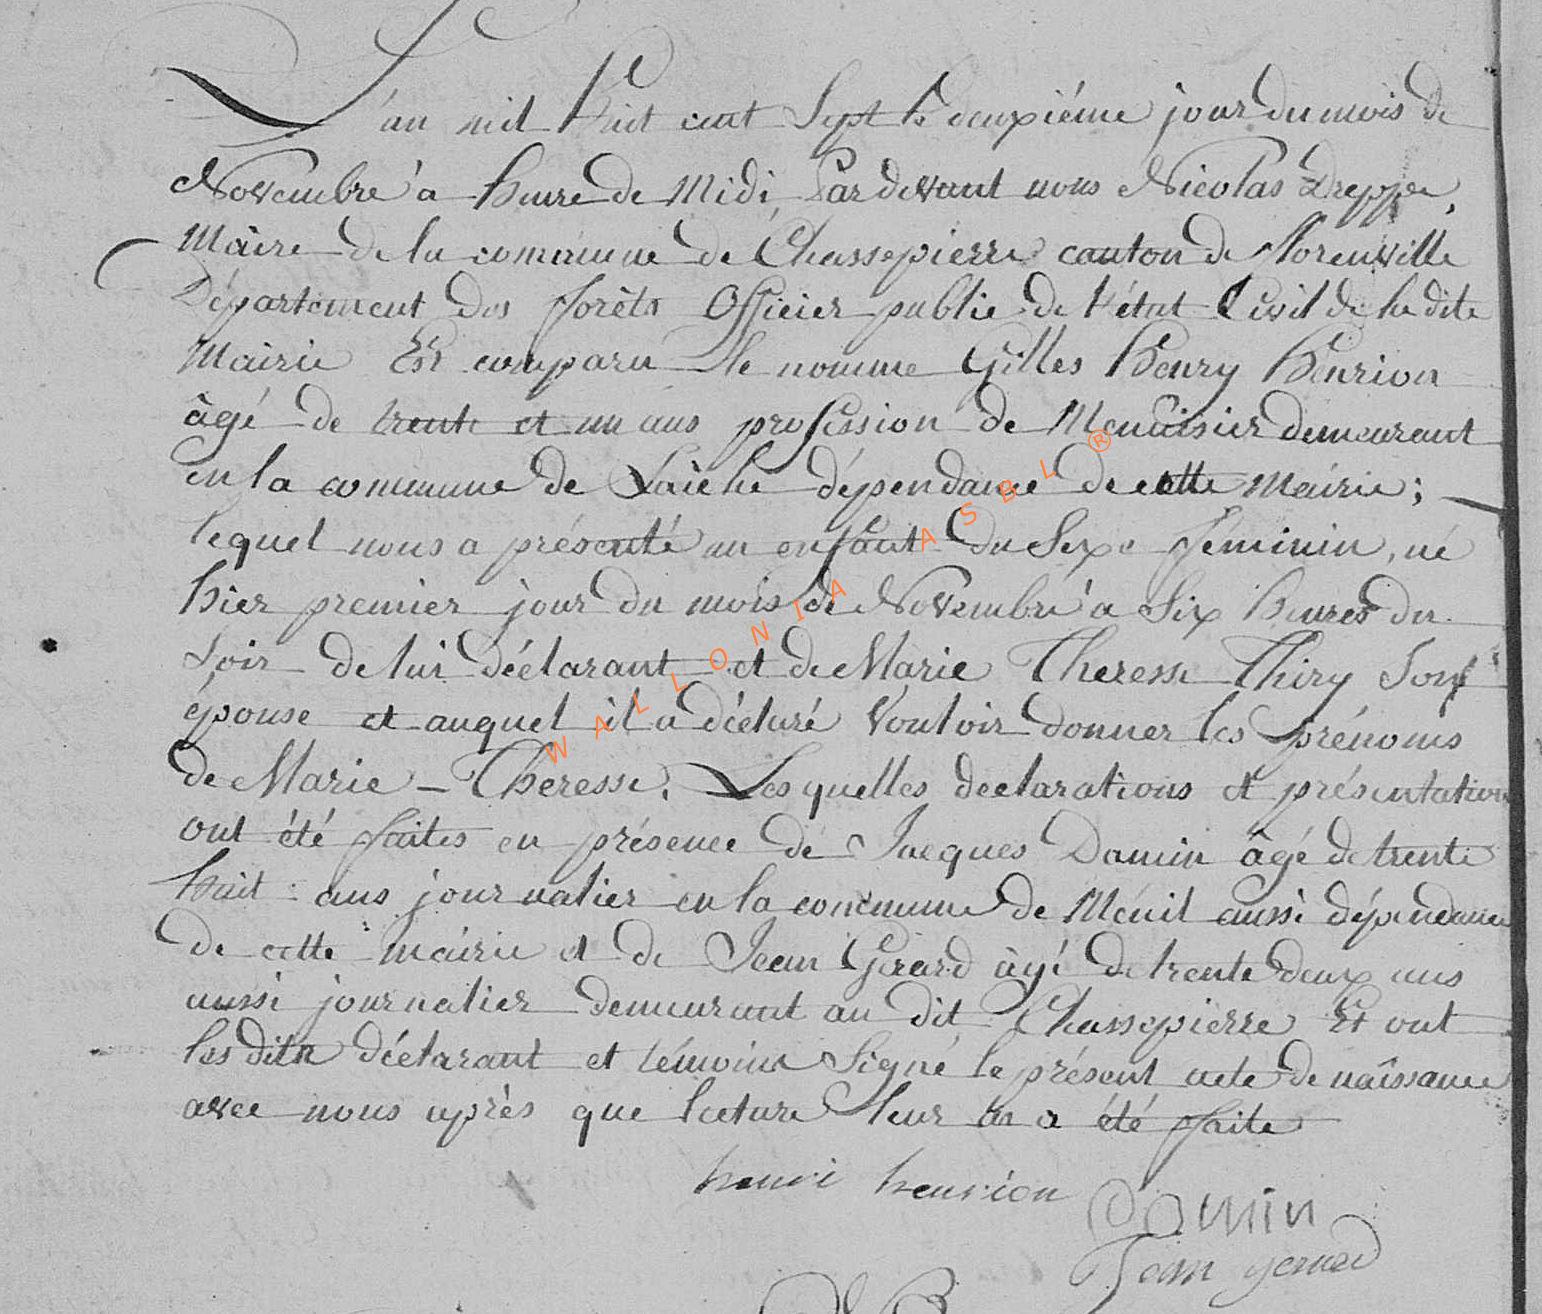 L'an mil huit cent Sept le deuxiéme jour du mois de
Novembre à heure de Midi, Pardevant nous Nicolas Dreppe,
Maire de la commune de Chassepierre canton de florenville
Département des forêts Officier public de l'état Civil de la dite
Mairie Est comparu le nomme Gilles Henry Henrion
âgé de trente et un ans profession de Menuisier demeurant
en la commune de Laiche dépendance de cette Mairie;
lequel nous a présenté un enfant du Sexe féminin, né
hier premier jour du mois de Novembre à Six heures du
Soir de lui déclarant et de Marie Theresse Thiry Son
épouse et auquel il a déclaré Vouloir donner les prénoms
de Marie - Theresse. Les quelles declarations et présentation
ont été faites en présence de Jacques Damin âgé de trente
huit ans journalier en la commune de Ménil aussi dépendance
de cette mairie et de Jean Gerard âgé de trente deux ans
aussi journalier demeurant au dit Chassepierre Et ont
les dits déclarant et témoins Signé le présent acte de naîssance
avec nous après que lecture leur en a été faite
henri henrion
Damin
Jean gerard
WALLONIA ASBL ®